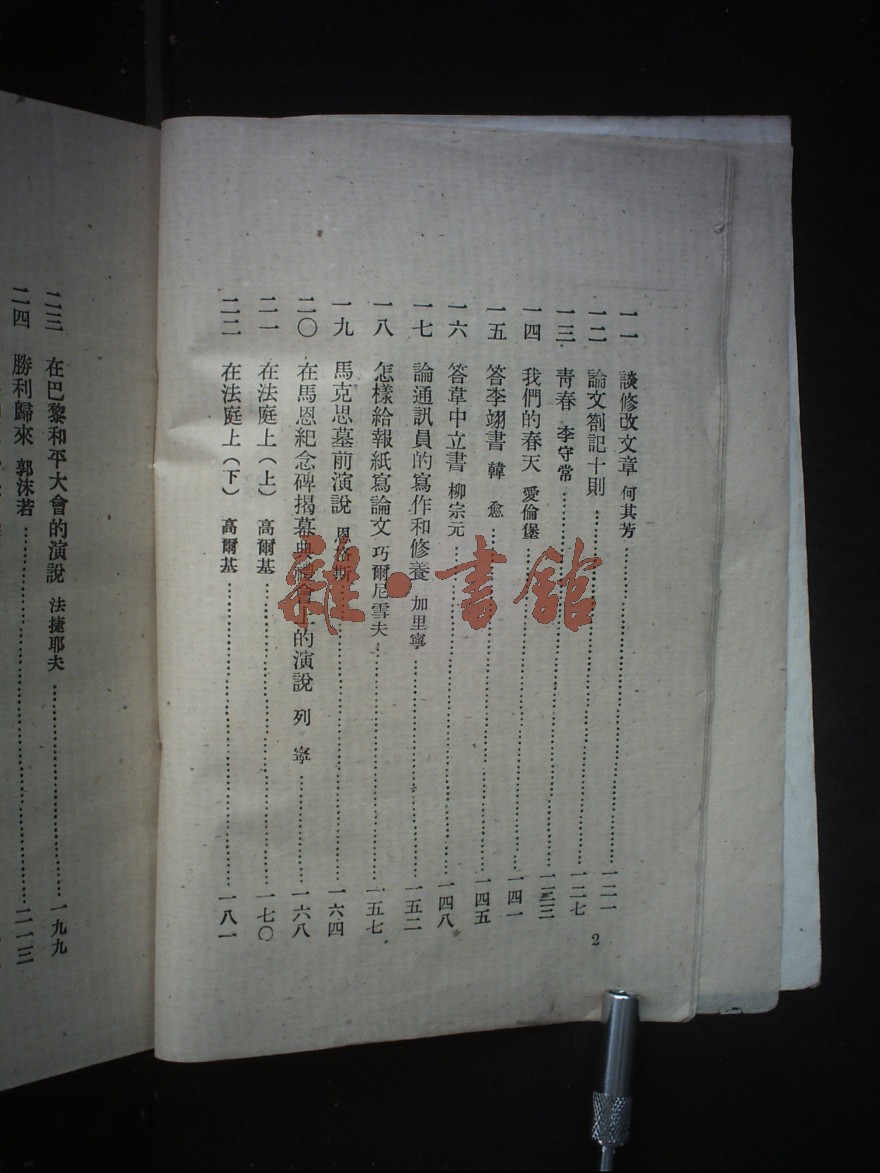 一一 談修改文章 何其芳 一二一
一二 論文劄記十則 一二七
一三 靑春 李守常 一三三
一四 我們的春天 愛倫堡 一四一
一五 答李翊書 韓愈 一四五
一六 答韋中立書 柳宗元 一四八
一七 論通訊員的寫作和修養 加里寧 一五二
一八 怎樣給報紙寫論文 巧爾尼雪夫 一五七
一九 馬克思墓前演說 恩格斯 一六四
二〇 在馬恩紀念碑揭幕典禮會上的演說 列寧 一六八
二一 在法庭上(上) 高爾基 一七〇
二二 在法庭上(下) 高爾基 一八一
2
二三 在巴黎和平大會的演說 法捷耶夫 一九九
二四 勝利歸來 郭沫若 二一三
雜·書館